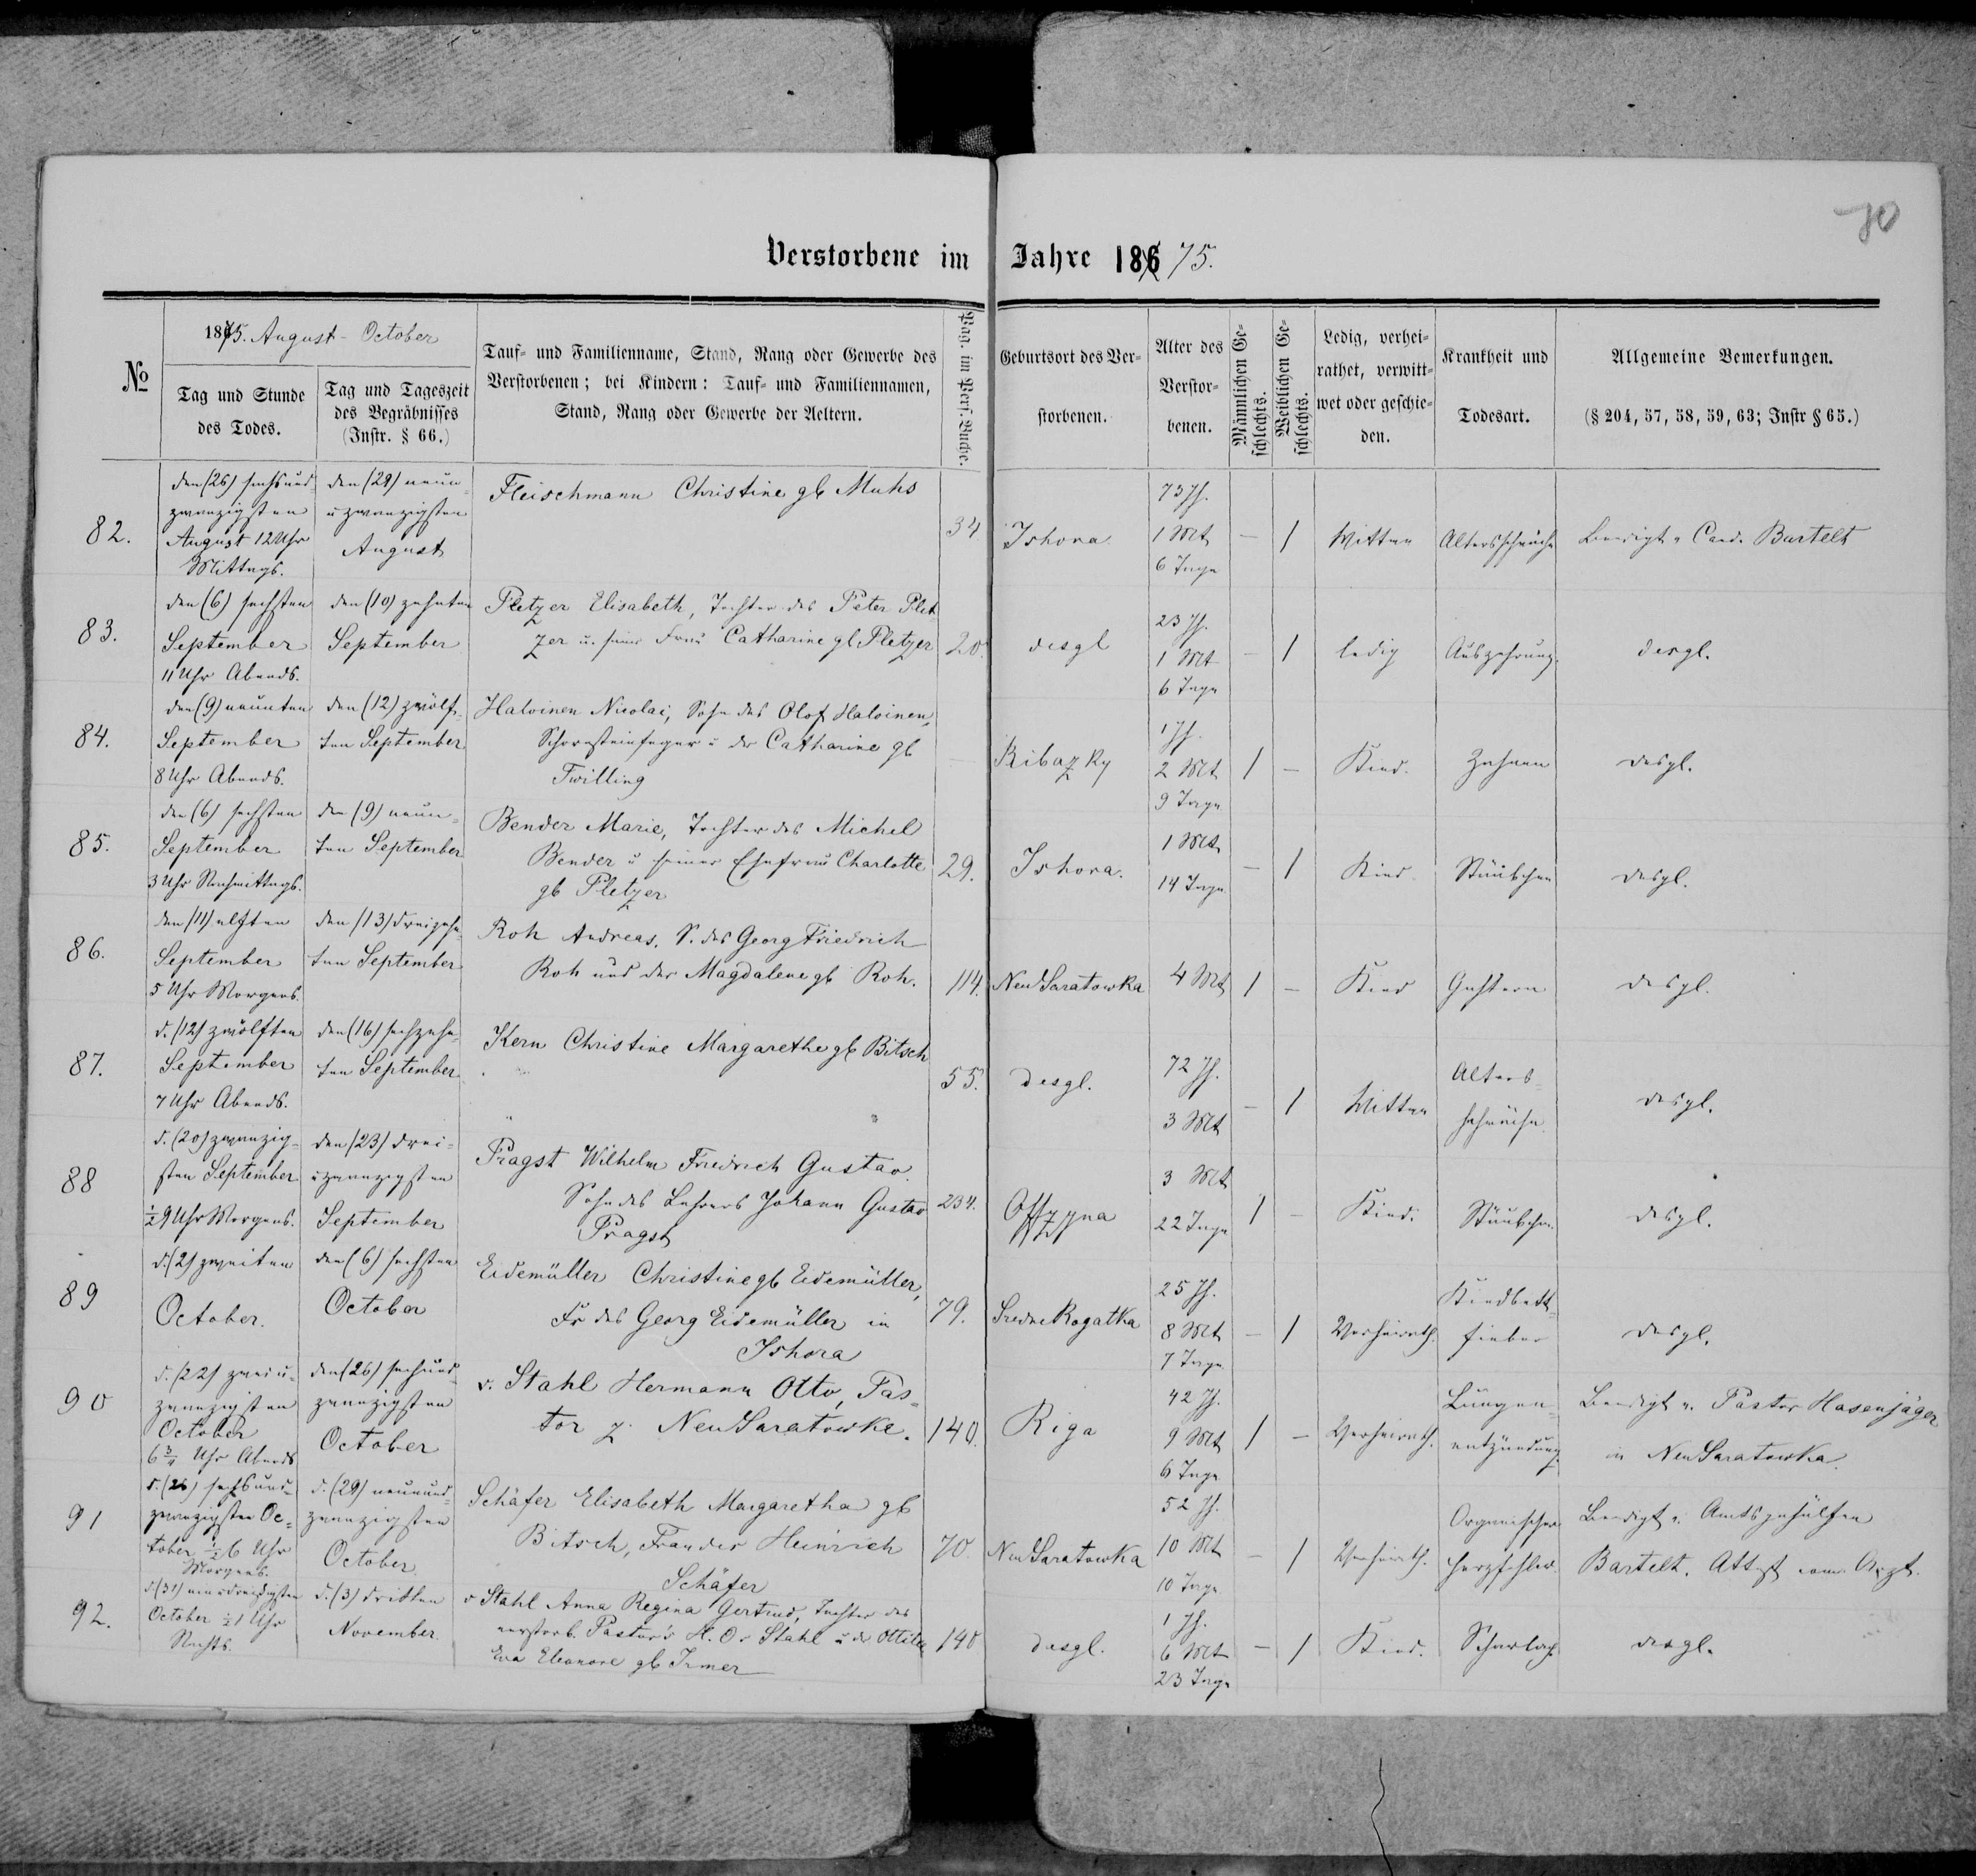 70
Verstorbene im Jahre 186 75.
№
1875. August - October
Tag und Stunde
des Todes.
Tag und Tageszeit
des Begräbnisses
(Instr. § 66.)
Tauf- und Familienname, Stand, Rang oder Gewerbe des
Verstorbenen; bei Kindern: Tauf- und Familiennamen,
Stand, Rang oder Gewerbe der Aeltern.
Pag. im Pers. Buche.
Geburtsort des Ver-
storbenen.
Alter des
Verstor-
benen.
Männlichen Ge-
schlechts.
Weiblichen Ge-
schlechts.
Ledig, verhei-
rathet, verwitt-
wet oder geschie-
den.
Krankheit und
Todesart.
Allgemeine Bemerkungen.
(§ 204, 57, 58, 59, 63; Instr § 65.)
82.
den (26) sechsund
zwanzigsten
August 12 Uhr
Mittags.
den (29) neun
u zwanzigsten
August
Fleischmann Christine gb Muhs
34
Ishora
73 Jh.
1 Mt
6 Tage
— 1
Wittwe
Altersschwäche
Beerdigt v Cand. Bartelt
83.
den (6) sechsten
September
11 Uhr Abends.
den (10) zehnten
September
Pletzer Elisabeth, Tochter des Peter Plet
zer u. seiner Frau Catharine gb Pletzer
20.
desgl
23 Jh.
1 Mt
6 Tage
— 1
ledig
Auszehrung.
desgl.
84.
den (9) neunten
September
8 Uhr Abends.
den (12) zwölf-
ten September
Haloinen Nicolai, Sohn des Olof Haloinen,
Schornsteinfeger u der Catharine gb
Twilling
Ribazky
1 Jh.
2 Mt
9 Tage
1 —
Kind.
Zahnen
desgl.
85.
den (6) sechsten
September
3 Uhr Nachmittags.
den (9) neun-
ten September
Bender Marie, Tochter des Michel
Bender u seiner Ehefrau Charlotte
gb Pletzer
29.
Ishora.
1 Mt
14 Tage
— 1
Kind
Stäubchen
desgl.
86.
den (11) elften
September
5 Uhr Morgens.
den (13) dreizehn-
ten September
Roh Andreas, S. des Georg Friedrich
Roh und der Magdalene gb Roh.
114.
NeuSaratowka
4 Mt
1 —
Kind
desgl.
87.
d. (12) zwölften
September
7 Uhr Abends.
den (16) sechzehn-
ten September
Kern Christine Margarethe gb Bitsch
55.
desgl.
72 Jh.
3 Mt
— 1
Wittwe
Alters-
schwäche.
desgl.
88
d. (20) zwanzig-
sten September
½ 9 Uhr Morgens.
den (23) drei-
u zwanzigsten
September
Pragst Wilhelm Friedrich Gustav
Sohn des Lehrers Johann Gustav
Pragst
234.
3 Mt
22 Tage
1 —
Kind.
Stäubchen.
desgl.
89
d. (2) zweiten
October.
den (6) sechsten
October
Eidemüller Christine gb Eidemüller,
Fr des Georg Eidemüller in
Ishora
79.
SredneRogatka
25 Jh.
8 Mt
7 Tage
— 1
Verheirath.
Kindbett-
fieber
desgl.
90
d. (22) zwei u-
zwanzigsten
October
6 ¾ Uhr Abends
den (26) sechsund
zwanzigsten
October
v. Stahl Hermann Otto, Pas-
tor z. NeuSaratowka.
140.
Riga
42 Jh.
9 Mt
6 Tage
1 —
Verheirath.
Lungen-
entzündung.
Beerdigt v. Pastor Hasenjäger
in NeuSaratowka.
91
d. (26) sechsund-
zwanzigsten Oc-
tober ½ 6 Uhr
Morgens.
d. (29) neunund-
zwanzigsten
October
Schäfer Elisabeth Margaretha gb
Bitsch, Frau des Heinrich
Schäfer
70.
NeuSaratowka
52 Jh.
10 Mt
10 Tage
— 1
Verheirath.
Organischer
Herzfehler.
Beerdigt v. Amtsgehülfen
Bartelt. Attest vom Arzt.
92.
d. (31) einunddreißigsten
October ½ 1 Uhr
Nachts.
d. (3) dritten
November.
v Stahl Anna Regina Gertrud, Tochter des
verstorb. Pastor's H. O. v Stahl u der Ottilie
Eva Eleonore gb Irmer
140
desgl.
1 Jh.
6 Mt
23 Tage
— 1
Kind.
Scharlach
desgl.